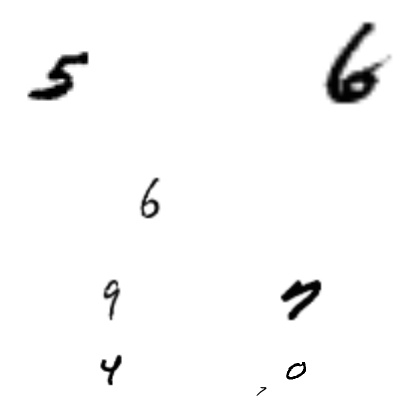 5 6
6
9 7
4 0
7